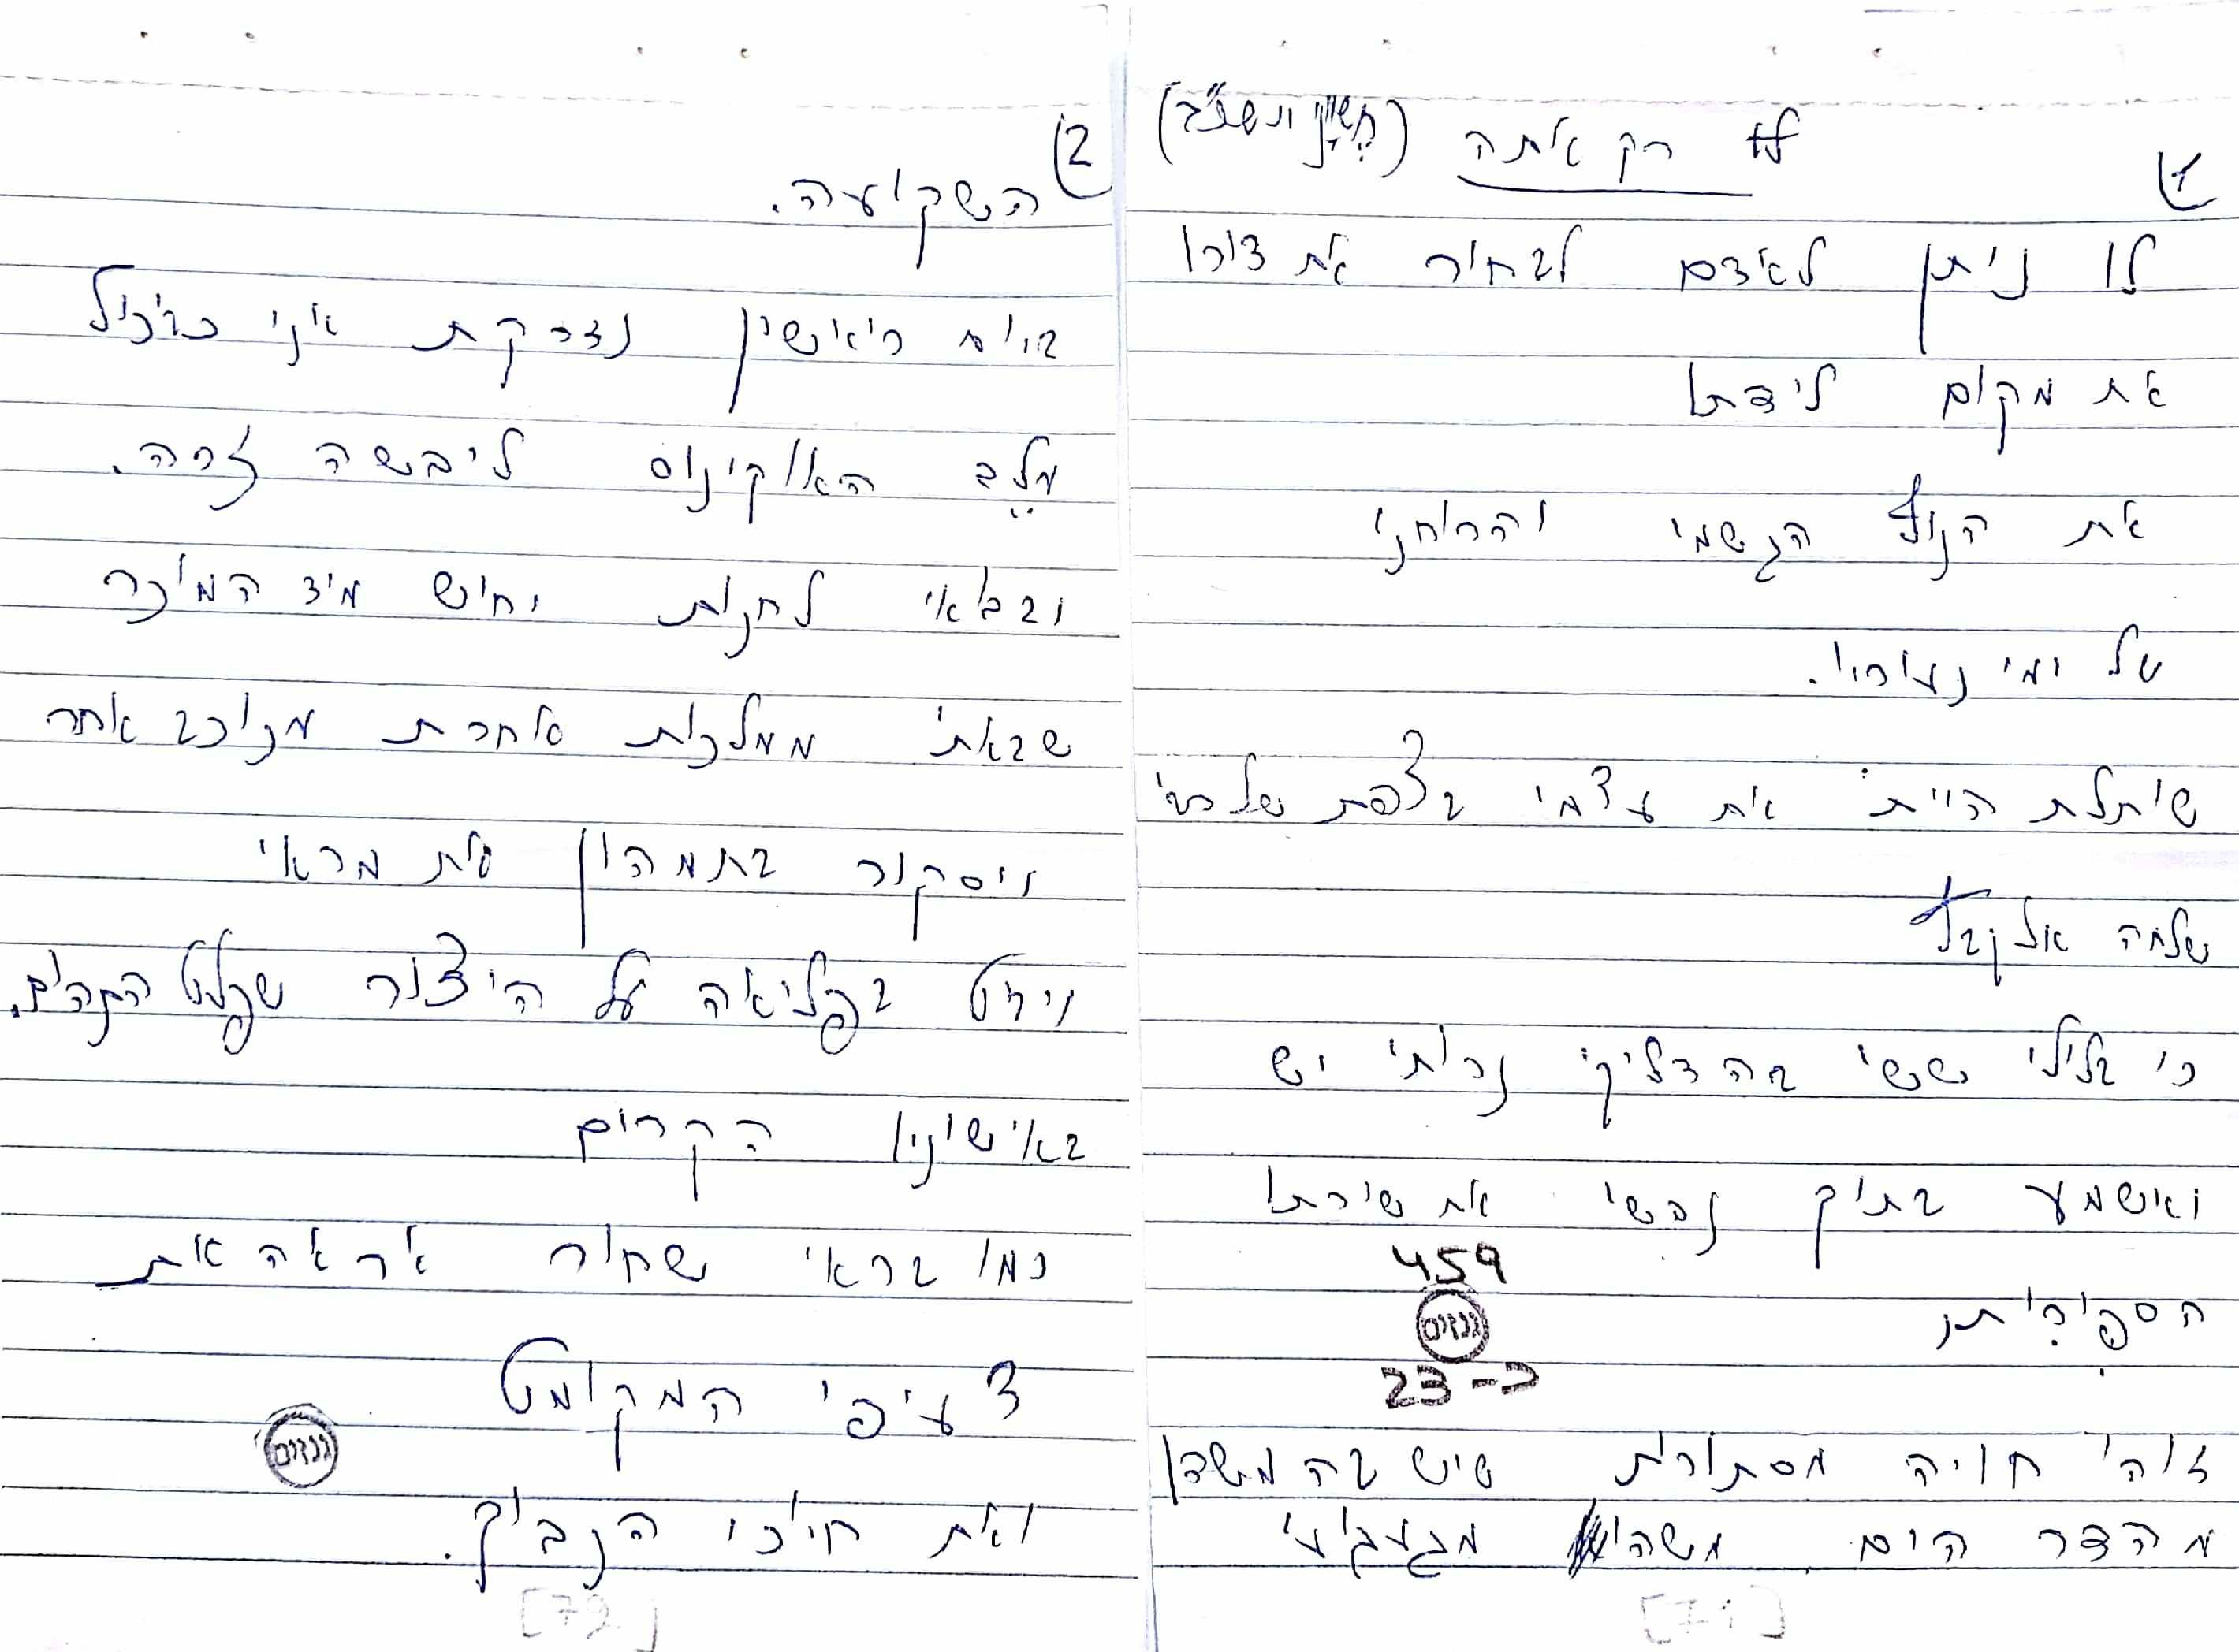 1)
רק אתה (חשוון תשע"ב)
לו ניתן לאדם לבחור את דורו
את מקום לידתו
את הנוף הגשמי והרוחני
של ימי נעוריו.
שותלת הייתי את עצמי בצפת של רבי
שלמה אלקבץ
כי בלילי ששי בהדליקי נרותי יש
ואשמע בתוך נפשי את שירתו
הספירתית
459
גנזים
23-כ
זוהי חויה מסתורית שיש בה משהו
מהדר היום משהו מגעגועי
[71]
2)
השקיעה.
ביום ראשון נזרקת אני כביכול
מלב האוקינוס ליבשה זרה.
ובבואי לחנות יחוש מיד המוכר
שבאתי ממלכות אחרת מכוכב אחר
ויסקור בתמהון את מראי
ויביט בפליאה על היצור שפלט התהום.
באישוניו הקרום
כמו בראי שחור אראה את
צעיפי המקומט
גנזים
ואת חיוכי הנבוך.
[72]